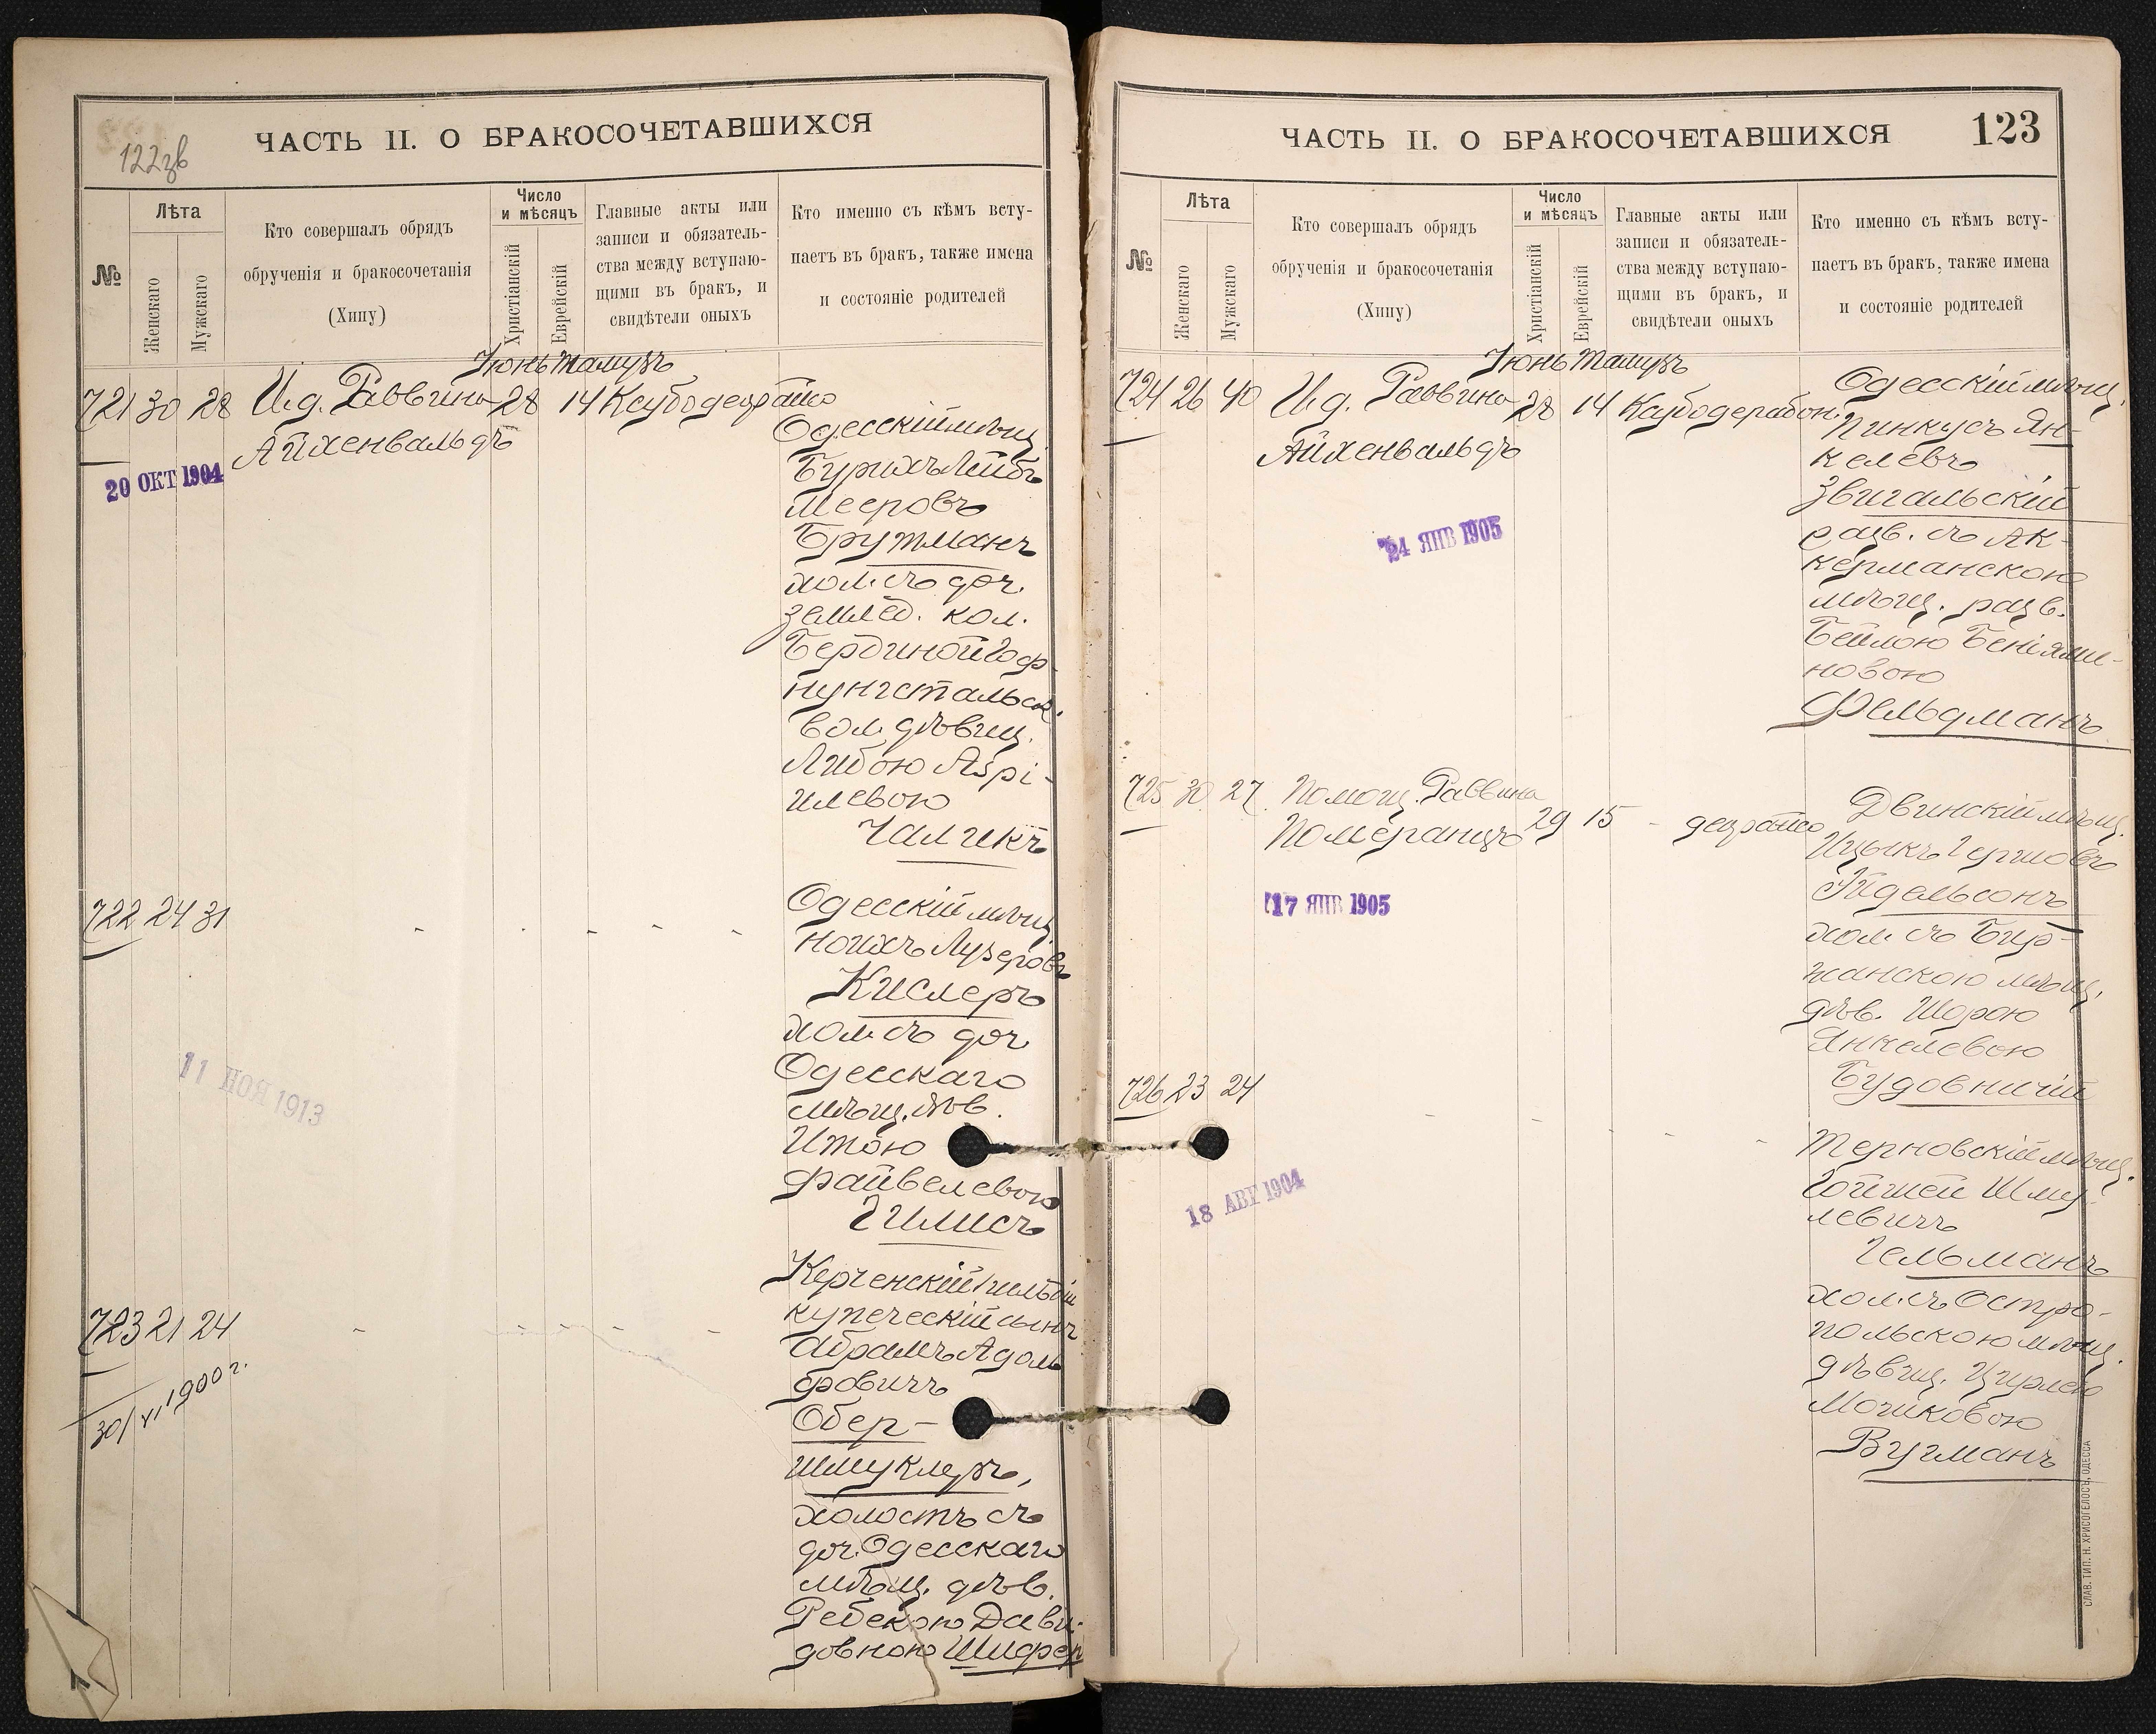 122 зв
ЧАСТЬ II. О БРАКОСОЧЕТАВШИХСЯ
№
Лѣта
Женскаго
Мужскаго
Кто совершалъ обрядъ
обрученія и бракосочетанія
(Хипу)
Число
и мѣсяцъ
Христіанскій
Еврейскій
Главные акты или
записи и обязатель-
ства между вступаю-
щими въ бракъ, и
свидѣтели оныхъ
Кто именно съ кѣмъ всту-
паетъ въ бракъ, также имена
и состояніе родителей
Іюнь Тамузъ
721 30 28 И.д. Раввина 28 14
Айхенвальдъ
20 ОКТ 1904
Одесскій мѣщ.
Бурихъ Лейбъ
Мееровъ
Брутманъ
хол. съ доч.
землед. кол.
нунгстальск.
вол. дѣвиц.
Либою Азрі-
илевою
Чалчикъ
722 24 31 - - - - -
Одесскій мѣщ.
Ноихъ Лузеровъ
Кислеръ
хол. съ доч.
Одесскаго
мѣщ. дѣв.
Итою
Файвелевою
Гилисъ
11 НОЯ 1913
723 21 24 - - - - -
30/VI 1900 г.
Керченскій 1 гильдіи
купеческій сынъ
Абрамъ Адоль
фовичъ
Обер-
шмуклеръ,
холостъ съ
доч. Одесскаго
мѣщ. дѣв.
Ребекою Дави-
довною Шифер
ЧАСТЬ II. О БРАКОСОЧЕТАВШИХСЯ
123
№
Лѣта
Женскаго
Мужскаго
Кто совершалъ обрядъ
обрученія и бракосочетанія
(Хипу)
Число
и мѣсяцъ
Христіанскій
Еврейскій
Главные акты или
записи и обязатель-
ства между вступаю-
щими въ бракъ, и
свидѣтели оныхъ
Кто именно съ кѣмъ всту-
паетъ въ бракъ, также имена
и состояніе родителей
Іюнь Тамузъ
724 26 40 И.д. Раввина 28 14
Айхенвальдъ
24 ЯНВ 1905
Одесскій мѣщ.
Пинкусъ Ян-
келевъ
Звигальскій
разв. съ Ак-
керманскою
мѣщ. разв.
Бейлою Беніями-
новою
Фельдманъ
725 30 27 Помощ. Раввина
Померанцъ 29 15 -
17 ЯНВ 1905
Двинскій мѣщ.
Ицыкъ Гершовъ
Эйдельсонъ
хол. съ Бир-
жанскою мѣщ.
дѣв. Шорою
Янкелевою
Будовничій
726 23 24 - - - - -
18 АВГ 1904
Терновскій мѣщ.
Гойшей Шму-
левичъ
Гельманъ
хол. съ Остро-
польскою мѣщ.
дѣвиц. Цирлею
Мошковою
Вугманъ
СЛАВ. ТИП. Н. ХРИСОГЕЛОСЪ, ОДЕССА